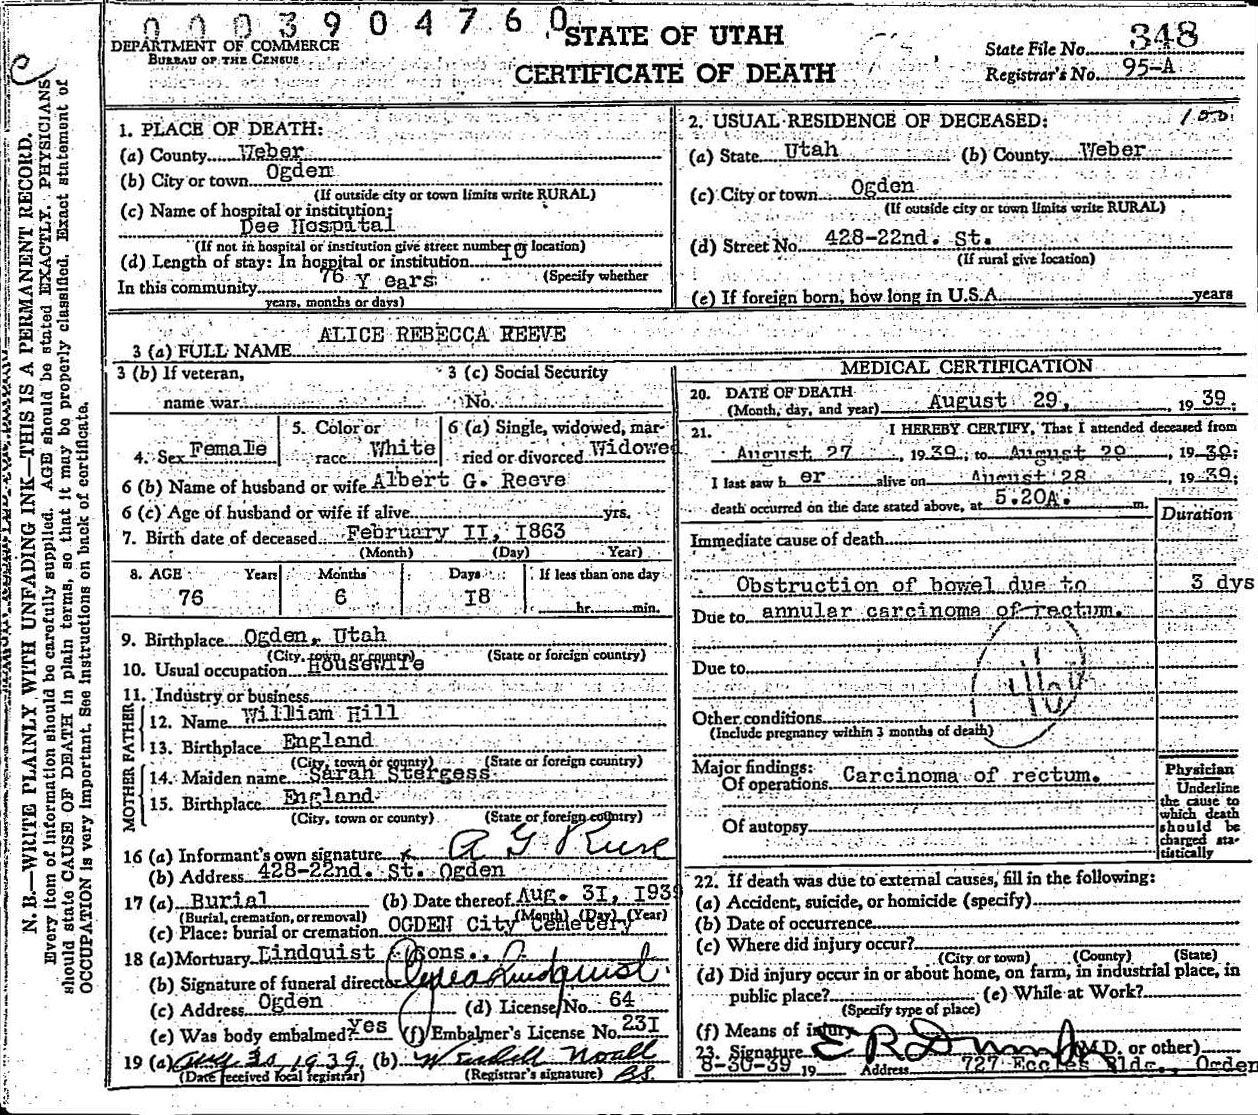 0003904760
DEPARTMENT OF COMMERCE
BUREAU OF THE CENSUS
STATE OF UTAH
CERTIFICATE OF DEATH
State File No. 348
Registrar's No. 95-A
N. B.—WRITE PLAINLY WITH UNFADING INK—THIS IS A PERMANENT RECORD.
Every item of information should be carefully supplied. AGE should be stated EXACTLY. PHYSICIANS
should state CAUSE OF DEATH in plain terms, so that it may be properly classified. Exact statement of
OCCUPATION is very important. See instructions on back of certificate.
1. PLACE OF DEATH:
(a) County Weber
(b) City or town Ogden
(If outside city or town limits write RURAL)
(c) Name of hospital or institution:
Dee Hospital
(If not in hospital or institution give street number or location)
(d) Length of stay: In hospital or institution 10
(Specify whether
In this community 76 Y ears
years, months or days)
2. USUAL RESIDENCE OF DECEASED:
(a) State Utah (b) County Weber
(c) City or town Ogden
(If outside city or town limits write RURAL)
(d) Street No. 428-22nd. St.
(If rural give location)
(e) If foreign born, how long in U.S.A. years
3 (a) FULL NAME ALICE REBECCA REEVE
3 (b) If veteran,
name war
3 (c) Social Security
No.
4. Sex Female
5. Color or
race White
6 (a) Single, widowed, mar-
ried or divorced Widowed
6 (b) Name of husband or wife Albert G. Reeve
6 (c) Age of husband or wife if alive yrs.
7. Birth date of deceased February II, I863
(Month) (Day) Year)
8. AGE Years Months Days If less than one day
76 6 I8 hr. min.
9. Birthplace Ogden, Utah
(City, town, or county) (State or foreign country)
10. Usual occupation Housewife
11. Industry or business
FATHER
12. Name William Hill
13. Birthplace England
(City, town or county) (State or foreign country)
MOTHER
14. Maiden name Sarah Stergess
15. Birthplace England
(City, town or county) (State or foreign country)
16 (a) Informant's own signature x A G Reeve
(b) Address 428-22nd. St. Ogden
17 (a) Burial (b) Date thereof Aug. 3I, I939
(Burial, cremation, or removal) (Month) (Day) (Year)
(c) Place: burial or cremation OGDEN City Cemetery
18 (a) Mortuary Lindquist & Sons.,
(b) Signature of funeral director Clyde Lindquist
(c) Address Ogden (d) License No. 64
(e) Was body embalmed? Yes (f) Embalmer's License No. 23I
19 (a) Aug 30, 1939 (b) Wendell Novall
(Date received local registrar) (Registrar's signature) BS.
MEDICAL CERTIFICATION
20. DATE OF DEATH
(Month, day, and year) August 29, , 19 39.
21. I HEREBY CERTIFY, That I attended deceased from
August 27 , 19 39, to August 29 , 19 39;
I last saw h er alive on August 28 , 19 39;
death occurred on the date stated above, at 5.20A. m.
Duration
Immediate cause of death
Obstruction of bowel due to 3 dys
Due to annular carcinoma of rectum.
Due to
Other conditions
(Include pregnancy within 3 months of death)
Major findings:
Of operations Carcinoma of rectum.
Of autopsy
Physician
Underline
the cause to
which death
should be
charged sta-
tistically
22. If death was due to external causes, fill in the following:
(a) Accident, suicide, or homicide (specify)
(b) Date of occurrence
(c) Where did injury occur?
(City or town) (County) (State)
(d) Did injury occur in or about home, on farm, in industrial place, in
public place? (e) While at Work?
(Specify type of place)
(f) Means of injury
23. Signature E R Dumke (M.D. or other)
8-30-39 19 Address 727 Eccles Bldg., Ogden